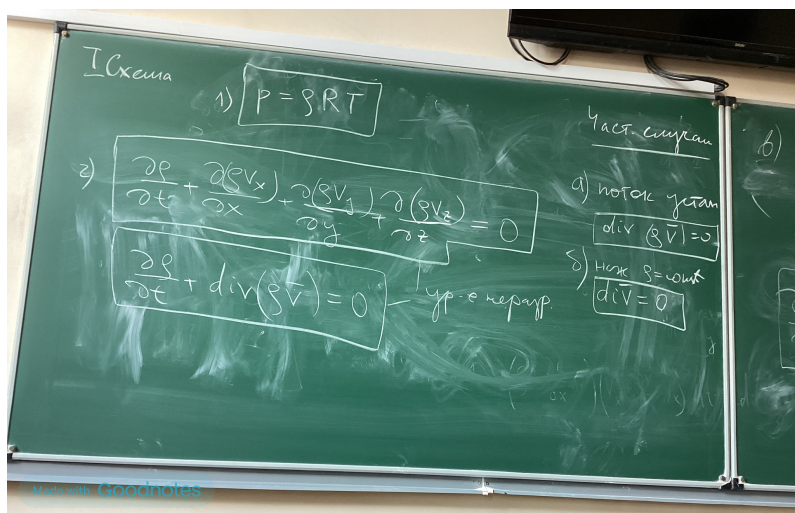 I Схема
1) P = ρRT
2) ∂ρ/∂t + ∂(ρVx)/∂x + ∂(ρVy)/∂y + ∂(ρVz)/∂z = 0
∂ρ/∂t + div(ρV̄) = 0 – ур-е неразр.
Част. случаи
а) поток устан
div (ρV̄) = 0
б) ρ = const
div V̄ = 0
в)
Made with Goodnotes